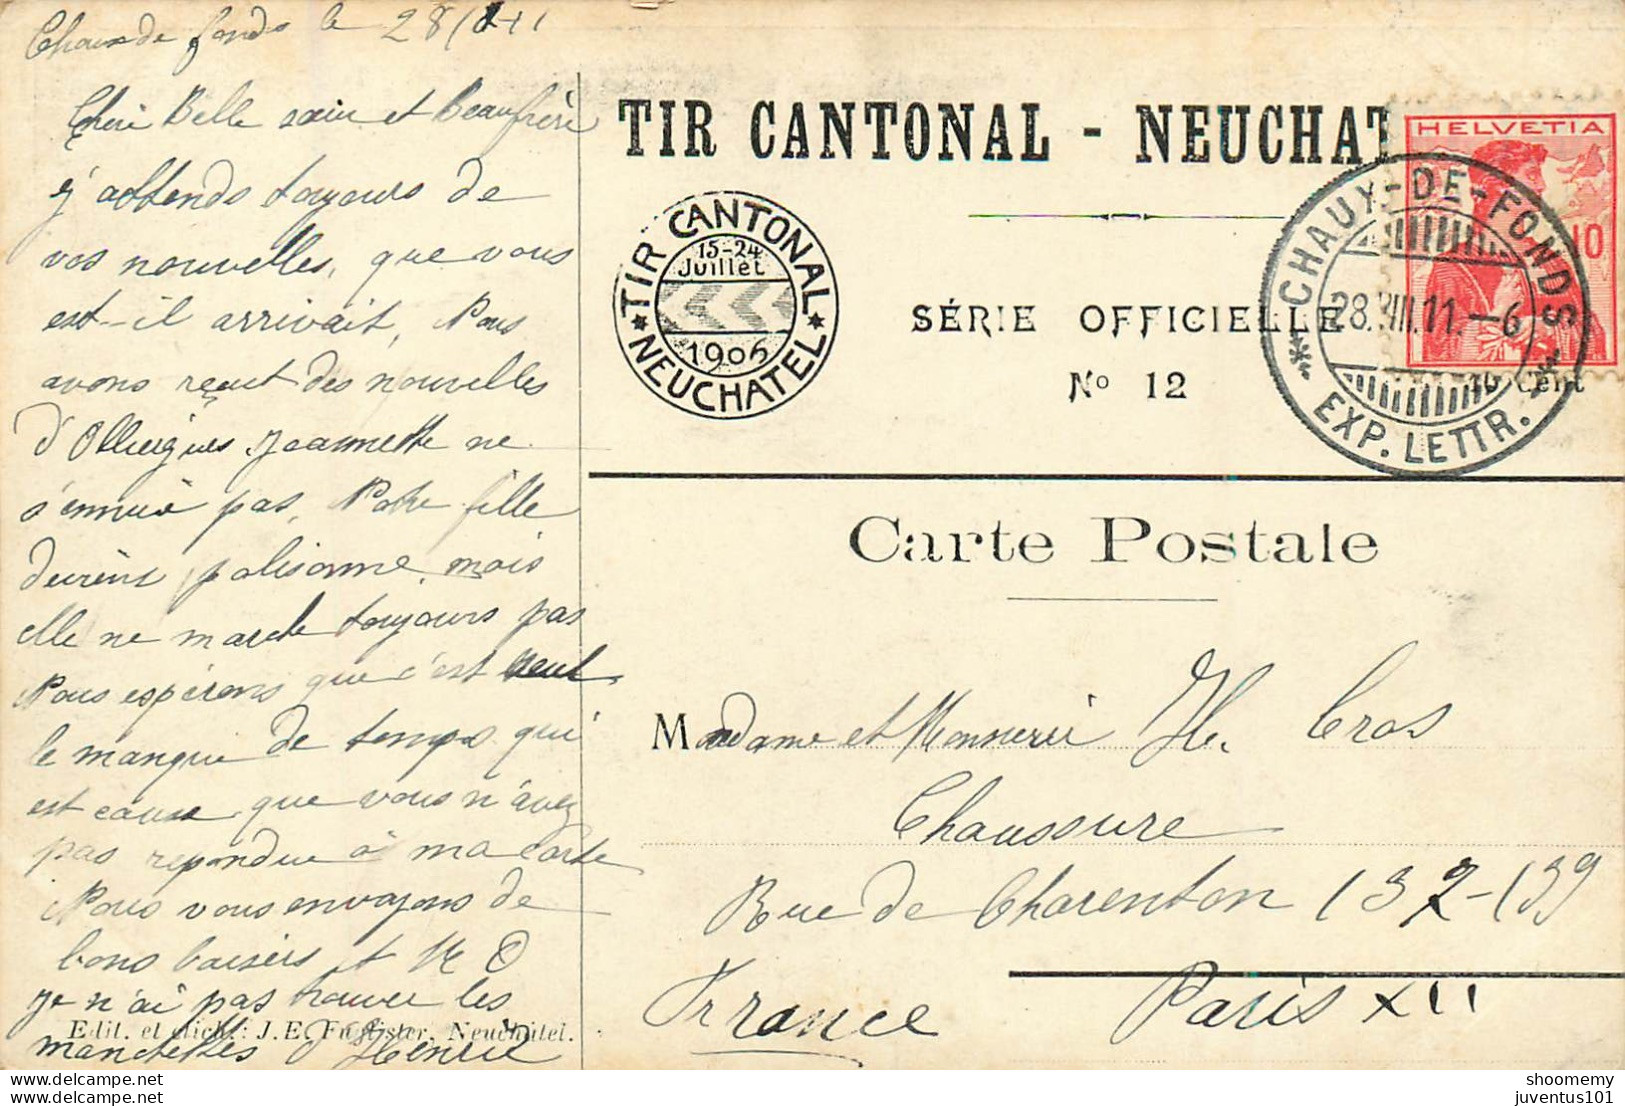 Chaux de fonds le 28/8/11
Chère Belle sœur et Beaufrère
j'attends toujours de
vos nouvelles, que vous
est-il arrivait, Nous
avons reçut des nouvelles
d'Olliergues Jeannette ne
s'ennuié pas, Notre fille
devient polisonne, mais
elle ne marche toujours pas
Nous espérons que c'est seul
le manque de temps qui
est cause que vous n'avez
pas repondue à ma carte
Nous vous envoyons de
bons baisers et
je n'ai pas trouver les
manchettes d'Henri
Edit. et clich.: J. E. Fuglister, Neuchâtel.
TIR CANTONAL - NEUCHAT
TIR CANTONAL
15-24
Juillet
1906
NEUCHATEL
SÉRIE OFFICIELLE
No 12
HELVETIA
10
CHAUX-DE-FONDS
28.VIII.11.-6
EXP. LETTR.
10 Cent
Carte Postale
Madame et Monnerie H. Cros
Chaussure
Rue de Charenton 137-139
Paris XII
France
shoomemy
juventus101